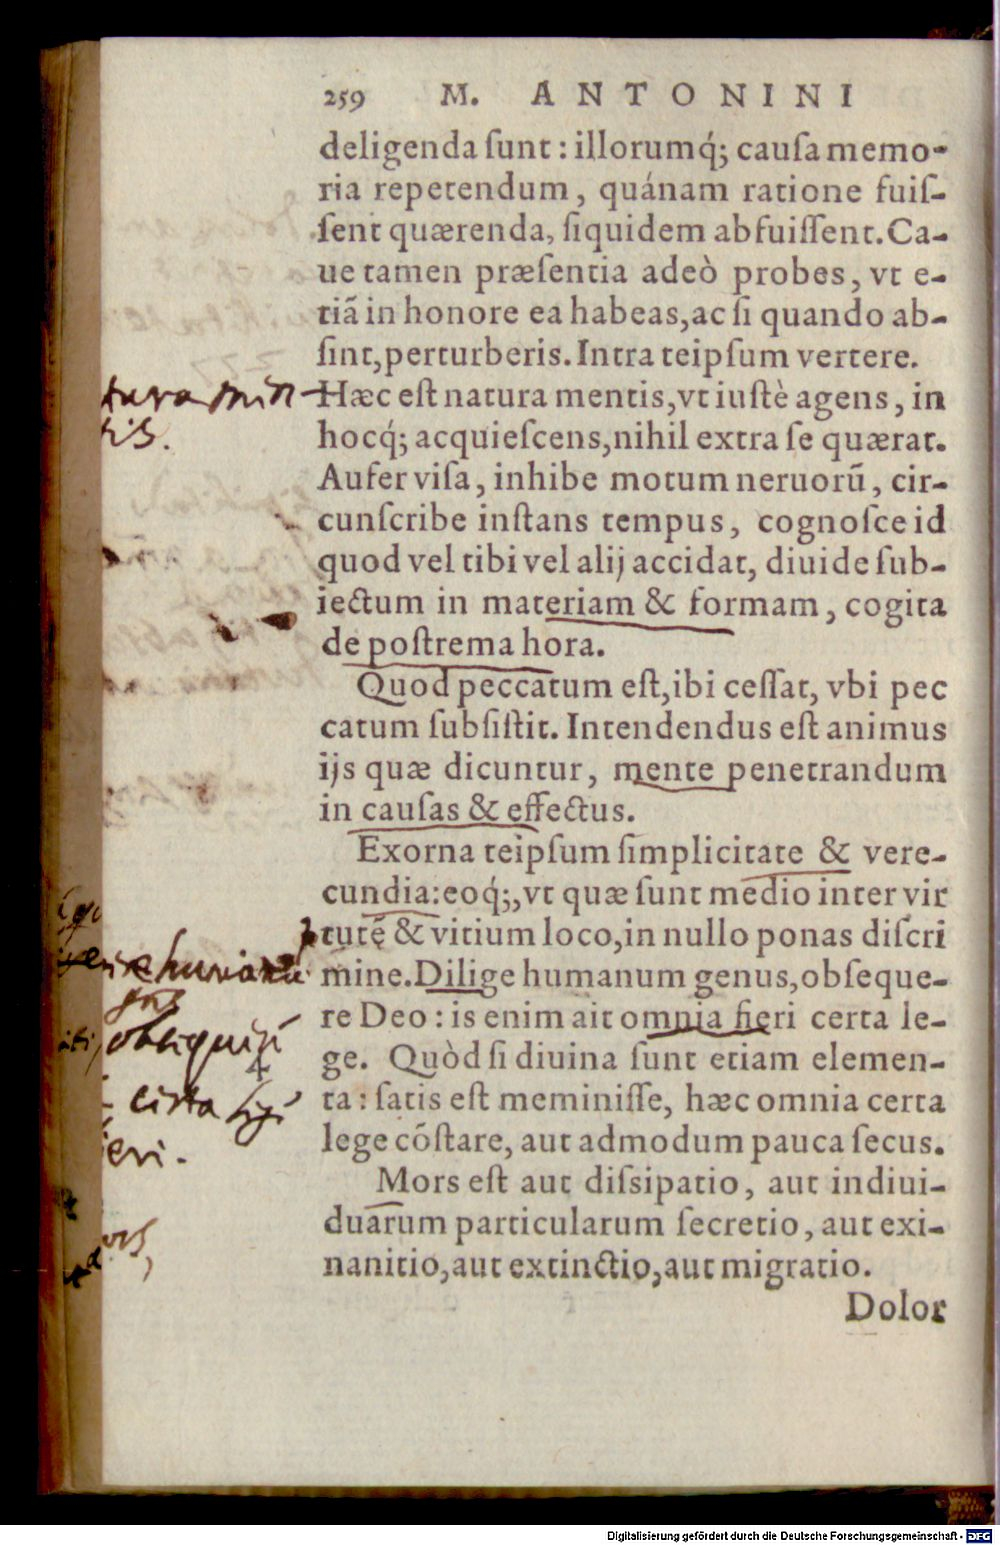 259 M. ANTONINI
deligenda sunt: illorumq́; causa memo-
ria repetendum, quánam ratione fuis-
sent quærenda, siquidem abfuissent. Ca-
ue tamen præsentia adeò probes, vt e-
tiã in honore ea habeas, ac si quando ab-
sint, perturberis. Intra teipsum vertere.
Hæc est natura mentis, vt iustè agens, in
hocq́; acquiescens, nihil extra se quærat.
Aufer visa, inhibe motum neruorũ, cir-
cunscribe instans tempus, cognosce id
quod vel tibi vel alij accidat, diuide sub-
iectum in materiam & formam, cogita
de postrema hora.
Quod peccatum est, ibi cessat, vbi pec
catum subsistit. Intendendus est animus
ijs quæ dicuntur, mente penetrandum
in causas & effectus.
Exorna teipsum simplicitate & vere-
cundia: eoq́;, vt quæ sunt medio inter vir
tutẽ & vitium loco, in nullo ponas discri
mine. Dilige humanum genus, obseque-
re Deo: is enim ait omnia fieri certa le-
ge. Quòd si diuina sunt etiam elemen-
ta: satis est meminisse, hæc omnia certa
lege cõstare, aut admodum pauca secus.
Mors est aut dissipatio, aut indiui-
duarum particularum secretio, aut exi-
nanitio, aut extinctio, aut migratio.
Dolor
certa
Digitalisierung gefördert durch die Deutsche Forschungsgemeinschaft - DFG